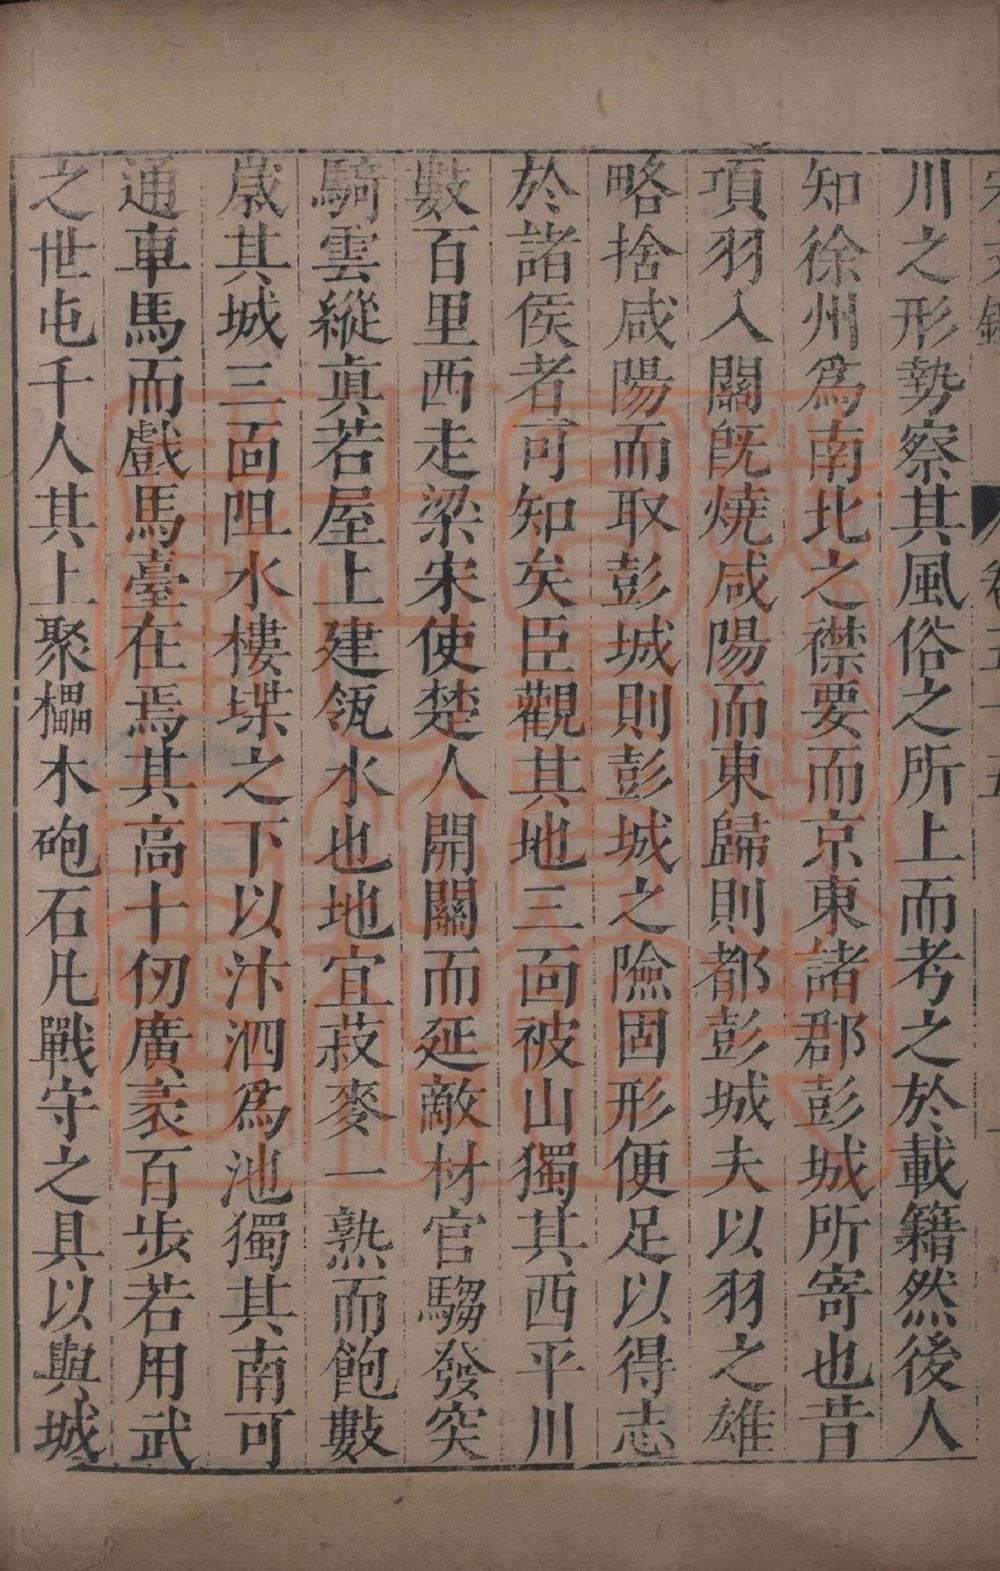 川之形勢察其風俗之所上而考之於載籍然後人
知徐州爲南北之襟要而京東諸郡彭城所寄也昔
項羽入關旣燒咸陽而東歸則都彭城夫以羽之雄
略捨咸陽而取彭城則彭城之險固形便足以得志
於諸侯者可知矣臣觀其地三面被山獨其西平川
數百里西走梁宋使楚人開關而延敵材官騶發突
騎雲縱眞若屋上建瓴水也地宜菽麥一熟而飽數
歲其城三面阻水樓堞之下以汴泗爲池獨其南可
通車馬而戲馬臺在焉其高十仞廣袤百步若用武
之世屯千人其上聚櫑木砲石凡戰守之具以與城